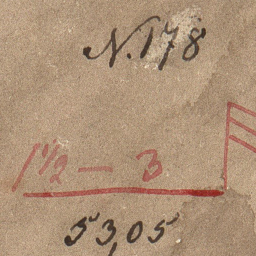 N. 178
1 1/2 — 3
53,05